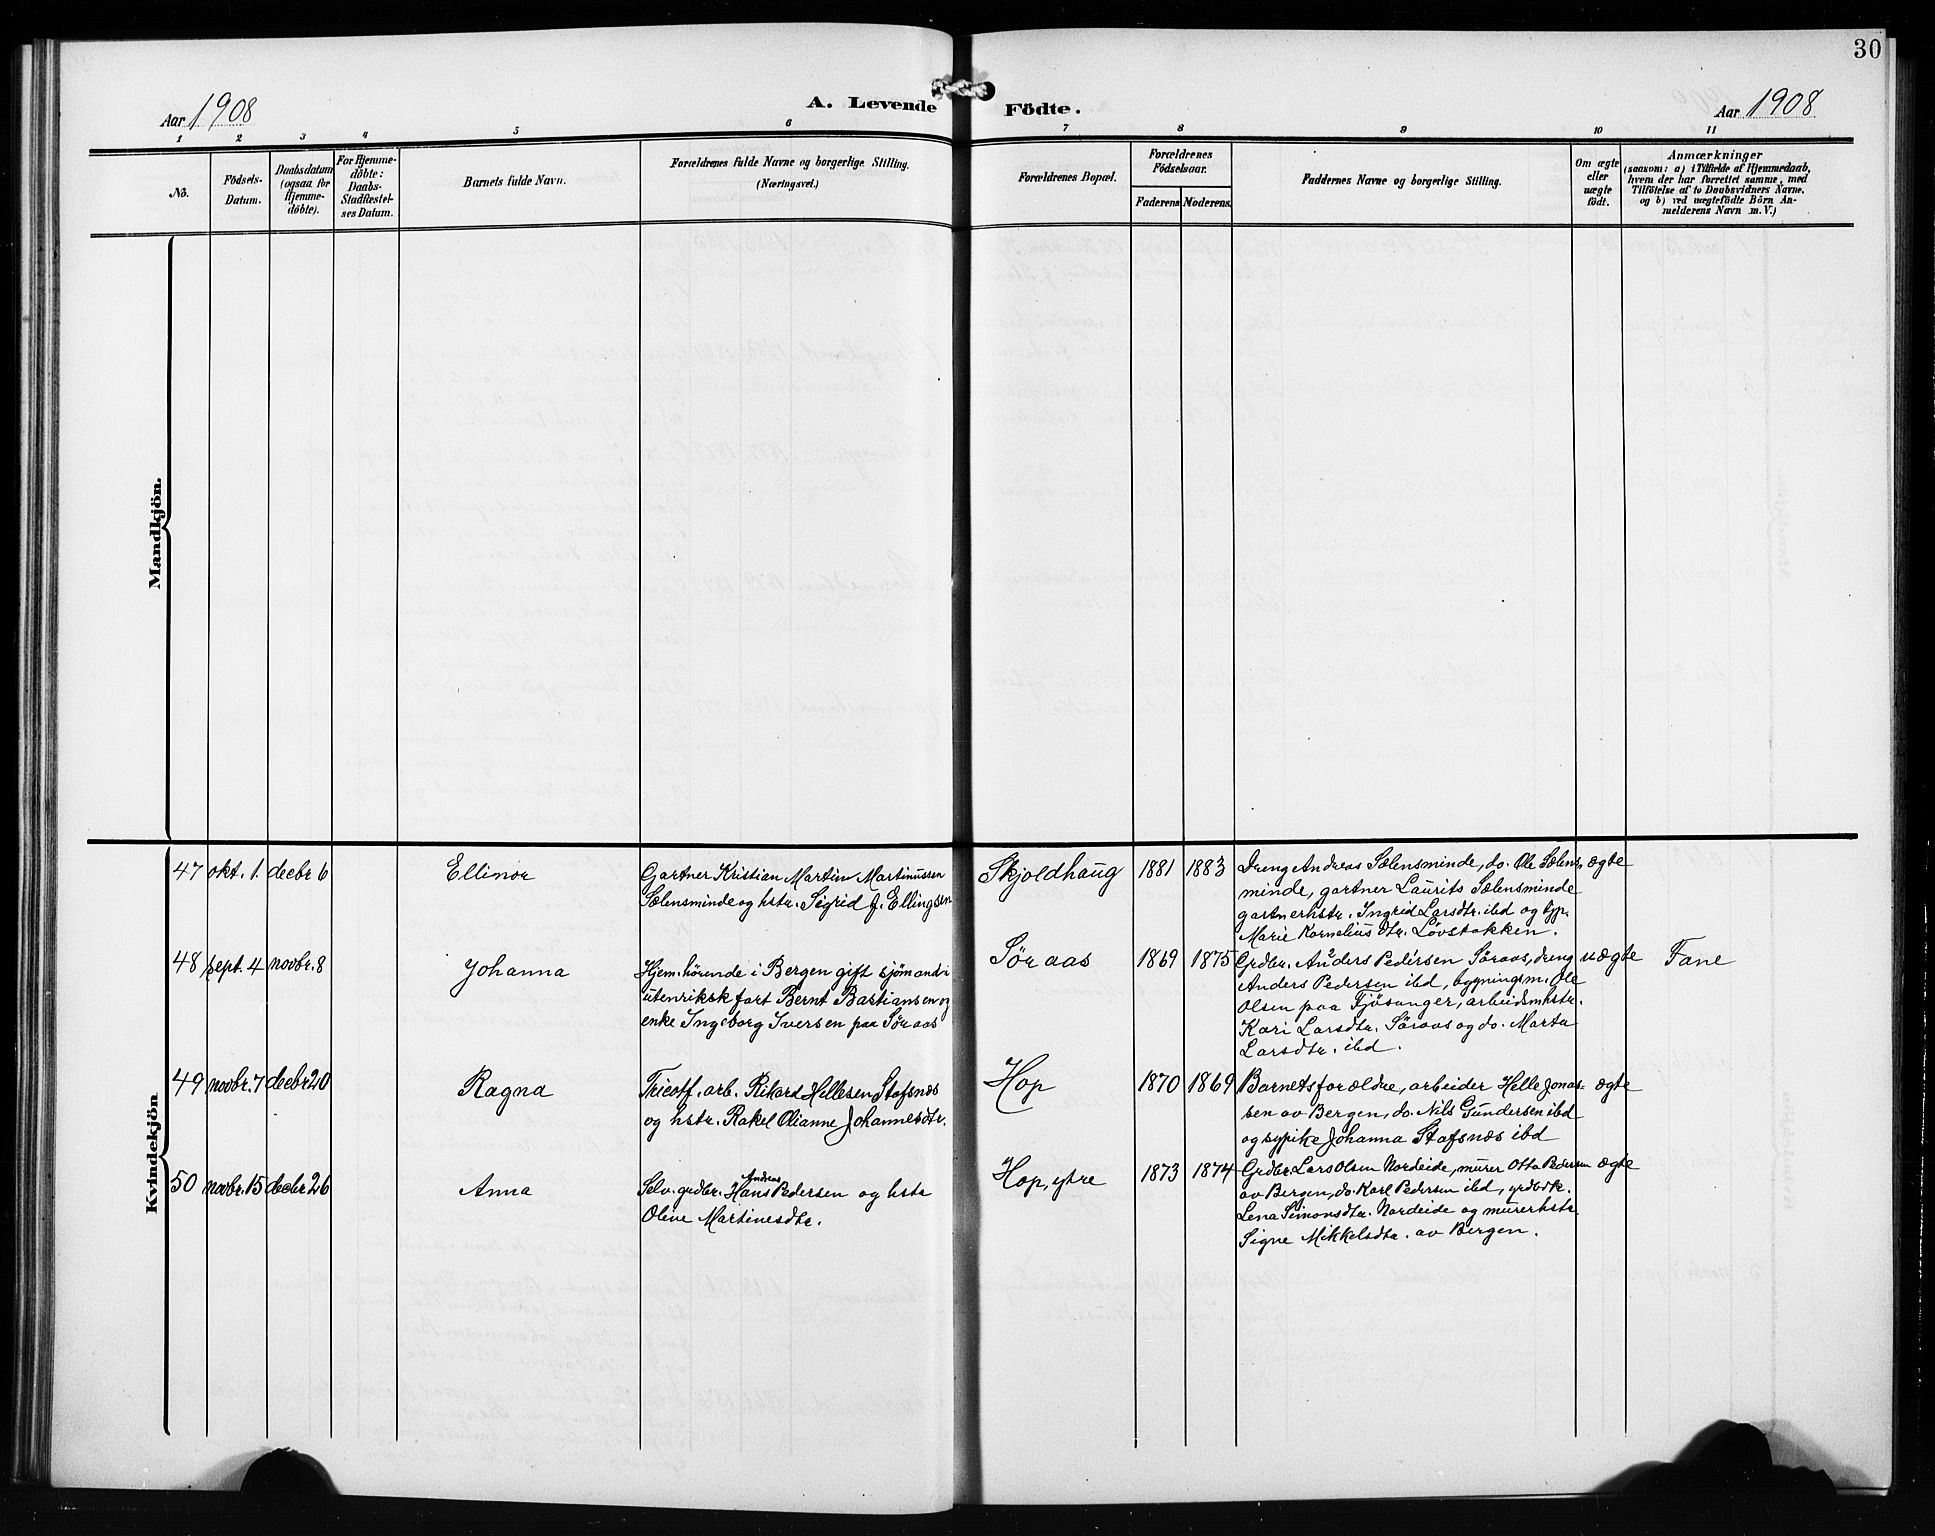 30
Aar 1908
A. Levende Födte.
Aar 1908
1 2 3 4 5 6 7 8 9 10 11
Nö.
Födsels-
Datum.
Daabsdatum
(ogsaa for
Hjemme-
döbte).
For Hjemme-
döbte:
Daabs-
Stadfæstel-
ses Datum.
Barnets fulde Navn.
Forældrenes fulde Navne og borgerlige Stilling.
(Næringsvei.)
Forældrenes Bopæl.
Forældrenes
Födselsaar.
Faderens
Moderens
Faddernes Navne og borgerlige Stilling.
Om ægte
eller
uægte
födt.
Anmærkninger
(saasom: a) i Tilfælde af Hjemmedaab,
hvem der har forrettet samme, med
Tilföielse af to Daabsvidners Navne,
og b) ved uægtefödte Börn An-
melderens Navn m. V.)
Mandkjön.
Kvindekjön
47 okt. 1. decbr 6
Ellinor
Gartner Kristian Martin Martinussen
Sælensminde og hstr. Sigrid J. Ellingsen
Skjoldhaug
1881 1883
Dreng Andreas Sælensminde, do. Ole Sælens-
minde, gartner Laurits Sælensminde
gartnerhstr. Ingrid Larsdtr. ibd og typ.
Marie Kornelius dtr. Løvstakken.
ægte
48 sept. 4 novbr. 8
Johanna
Hjem-hørende i Bergen gift sjømand i
utenriksk fart Bernt Bastiansen og
enke Ingeborg Iversen paa Søraas
Søraas
1869 1875
Grdbr. Anders Pedersen Søraas, dreng
Anders Pedersen ibd, bygningsm. Ole
Olsen paa Fjøsanger, arbeidsmhstr.
Kari Larsdtr. Søraas og do. Marta
Larsdtr. ibd.
uægte
Fane
49 novbr. 7 decbr 20
Ragna
Tricotf. arb. Rikard Hellesen Stafsnæs
og hstr. Rakel Olianne Johannesdtr.
Hop
1870 1869
Barnets forældre, arbeider Helle Jonas-
sen av Bergen, do. Nils Gundersen ibd
og sypike Johanna Stafsnæs ibd
ægte
50 novbr. 15 decbr 26
Anna
Andreas
Selv. grdbr. Hans Pedersen og hstr
Oline Martinesdtr.
Hop, ytre
1873 1874
Grdbr. Lars Olsen Nordeide, murer Otto Pedersen
av Bergen, do. Karl Pedersen ibd, grdbrk.
Lena Simonsdtr. Nordeide og murerhstr
Signe Mikkelsdtr. av Bergen.
ægte